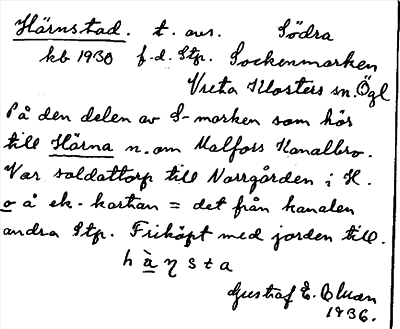 Härnstad. t. avs. Södra
kb 1930 f.d. Stp. Sockenmarken
Vreta Klosters sn. Ögl
På den delen av S-marken som hör
till Härna n. om Malfors Kanalbro.
Var soldattorp till Norrgården i H.
o å ek-kartan = det från kanalen
andra Stp. Friköpt med jorden till.
h à η s t a
Gustaf E.
1936.